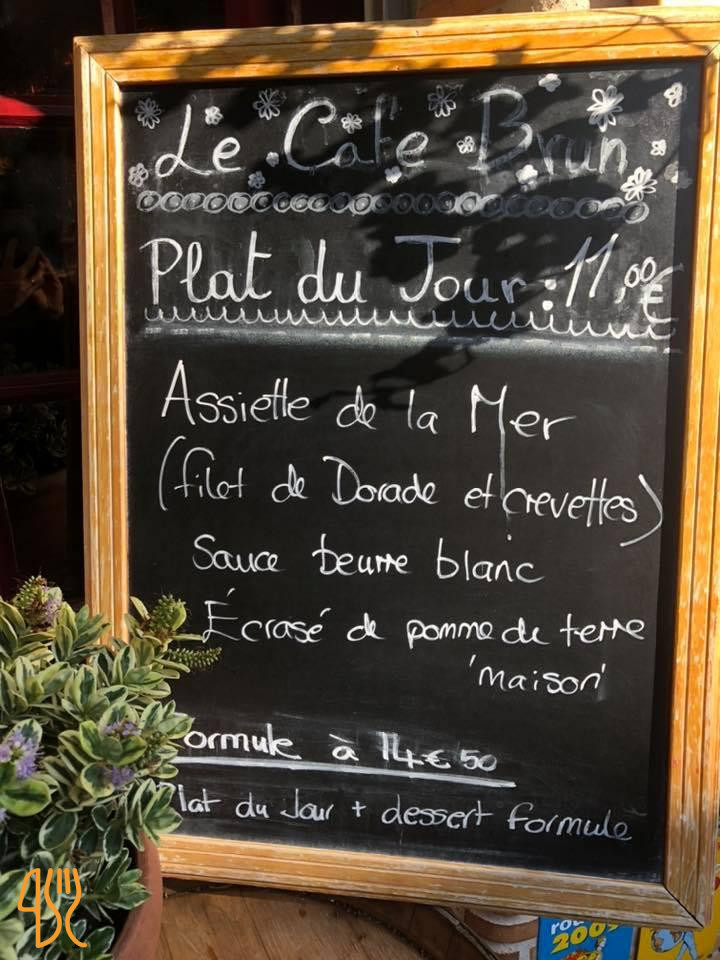 Le Cafe Brun
Plat du Jour : 11,00€
Assiette de la Mer
(filet de Dorade et crevettes)
Sauce beurre blanc
Écrasé de pomme de terre
'maison'
ormule à 14€50
Plat du Jour + dessert formule
200